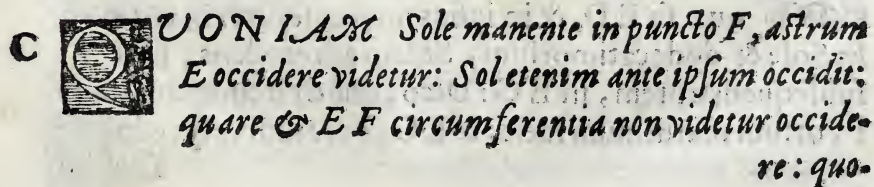 C QVONIAM Sole manente in puncto F, astrum
E occidere videtur: Sol etenim ante ipſum occidit:
quare & E F circumferentia non videtur occide-
re: quo-